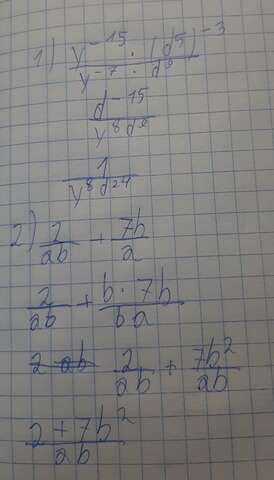 1) \frac{y^{-15} \cdot (d^5)^{-3}}{y^{-7} \cdot d^9}
\frac{d^{-15}}{y^8 d^9}
\frac{1}{y^8 d^{24}}
2) \frac{2}{ab} + \frac{7b}{a}
\frac{2}{ab} + \frac{b \cdot 7b}{ba}
\frac{2}{ab} + \frac{7b^2}{ab}
\frac{2 + 7b^2}{ab}